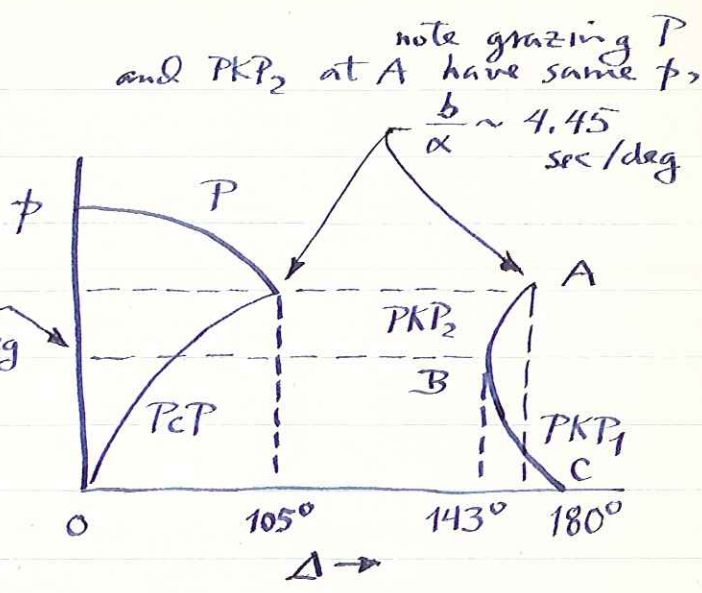 note grazing P
and PKP₂ at A have same p,
b/α ~ 4.45
sec/deg
p
P
A
PKP₂
B
PcP
PKP₁
C
0
105°
143°
180°
Δ →